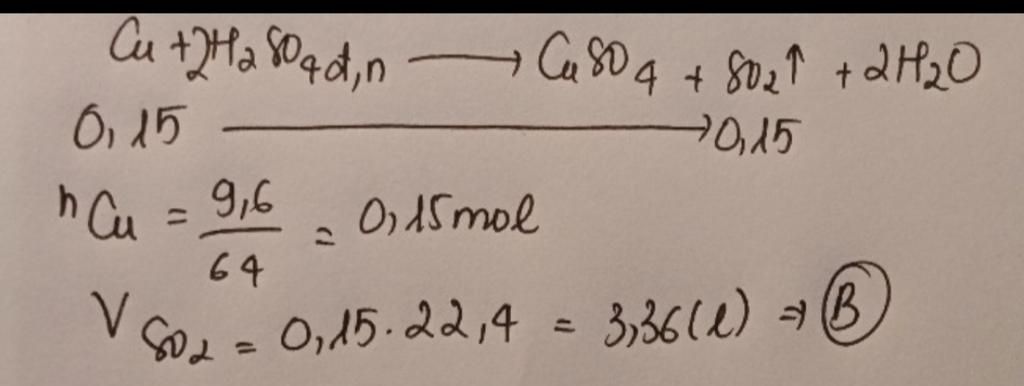 Cu + 2H₂SO₄đ,n ⟶ CuSO₄ + SO₂↑ + 2H₂O
0,15 ⟶ 0,15
nCu = 9,6/64 = 0,15mol
V SO₂ = 0,15.22,4 = 3,36(l) ⇒ B